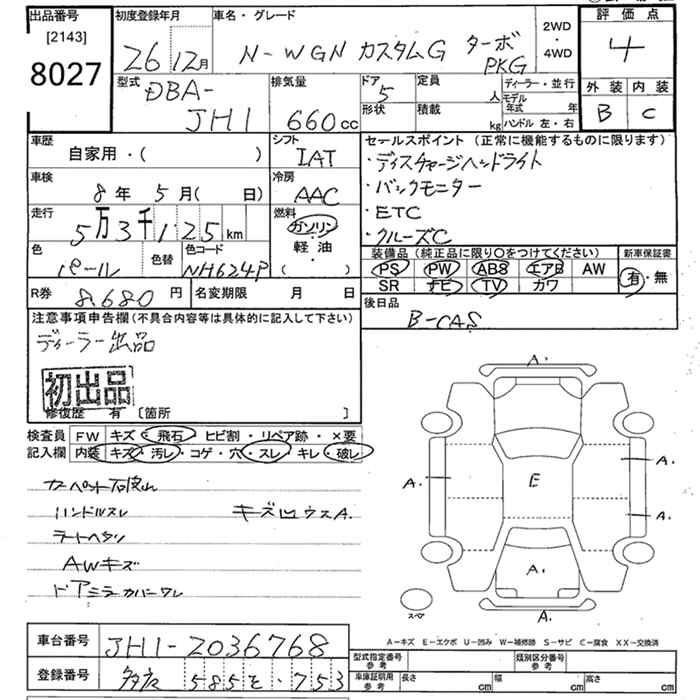 出品番号
[2143]
8027
初度登録年月
26 12月
車名・グレード
N-WGN カスタムG ターボ
PKG
2WD
・
4WD
評価点
4
外装 内装
B C
型式
DBA-
JH1
排気量
660cc
ドア
5
形状
定員
人
積載
kg
ディーラー・並行
モデル
年式 年
ハンドル 左・右
車歴
自家用・( )
シフト
IAT
セールスポイント(正常に機能するものに限ります)
・ディスチャージヘッドライト
・バックモニター
・ETC
・クルーズC
車検
8年 5月( 日)
冷房
AAC
走行
5万3千125km
燃料
ガソリン
軽油・
( )
色
パール
色替
色コード
NH624P
装備品(純正品に限り○をつけてください)
PS PW ABS エアB AW
SR ナビ TV カワ
新車保証書
有・無
R券
8,680円
名変期限 月 日
後日品
B-CAS
注意事項申告欄(不具合内容等は具体的に記入して下さい)
ディーラー出品
初出品
修復歴 有 〔箇所 〕
検査員
記入欄
FW キズ・飛石・ヒビ割・リペア跡・×要
内装 キズ・汚レ・コゲ・穴・スレ・キレ・破レ
ハンドルスレ
キズ凹ウスA.
AWキズ
ドアミラーカバーワレ
A.
A.
A.
A.
E
A.
A.
スペア
A-キズ E-エクボ U-凹み W-補修跡 S-サビ C-腐食 XX-交換済
車台番号
JH1-2036768
登録番号
多摩 585 そ・753
型式指定番号
参考
類別区分番号
参考
車庫証明用
参考
長さ cm
幅 cm
高さ cm